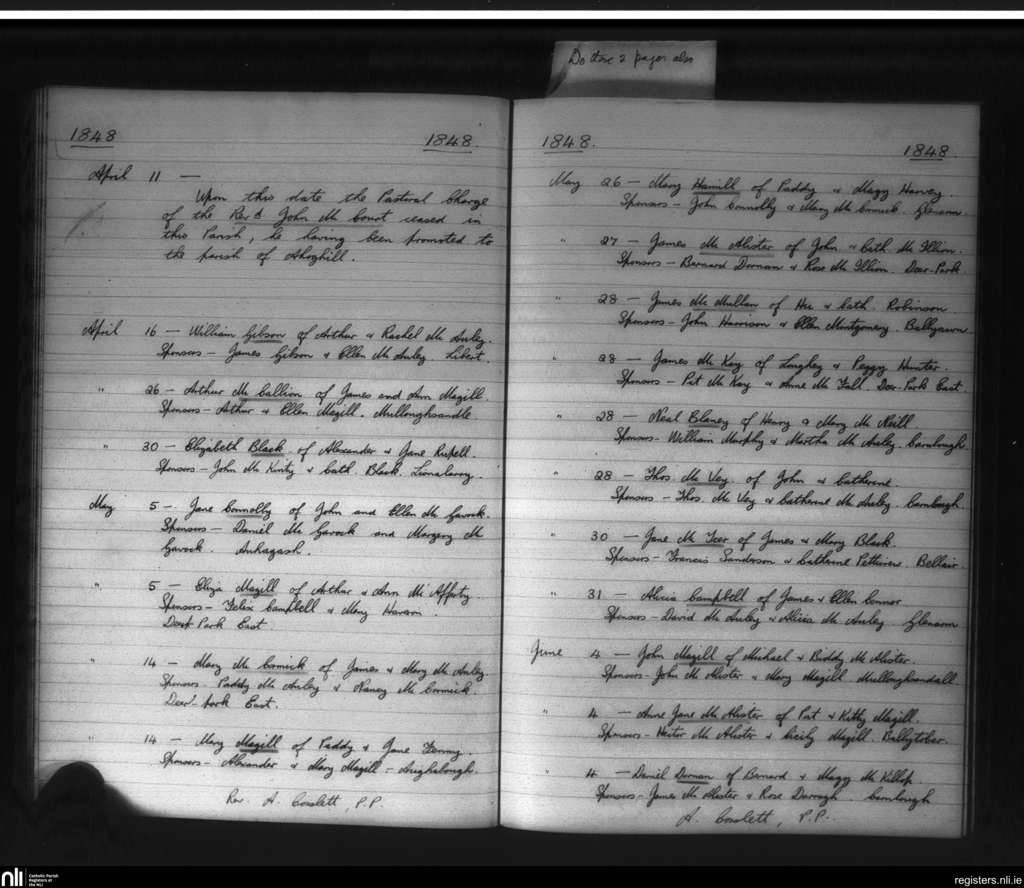 Do these 2 pages also
1848 1848.
April 11 —
Upon this date the Pastoral Charge
of the Revd John Mc Court ceased in
this Parish, he having been promoted to
the parish of Ahoghill.
April 16 — William Gibson of Arthur & Rachel Mc Auley.
Sponsors — James Gibson & Ellen Mc Auley. Libert.
" 26 — Arthur Mc Callion of James and Ann Magill.
Sponsors — Arthur & Ellen Magill. Mulloughsandle.
" 30 — Elizabeth Black of Alexander & Jane
Sponsors — John Mc Kinty & Cath. Black.
May 5 — Jane Connolly of John and Ellen Mc Gavock.
Sponsors — Daniel Mc Gavock and Margery Mc
Gavock. Ankagash.
" 5 — Eliza Magill of Arthur & Ann Mc Afferty.
Sponsors — Felix Campbell & Mary
Deer Park East.
" 14 — Mary Mc Cormick of James & Mary Mc Auley.
Sponsors — Paddy Mc Auley & Nancy Mc Cormick.
Deer-park East.
" 14 — Mary Magill of Paddy & Jane
Sponsors — Alexander & Mary Magill —
Rev. A. Cosslett, P.P.
1848. 1848.
May 26 — Mary Hamill of Paddy & Magy Harvey
Sponsors — John Connolly & Mary Mc Cormick. Glenarm.
" 27 — James Mc Alister of John & Cath. Mc Illion.
Sponsors — Bernard Dornan & Rose Mc Illion. Deer-Park.
" 28 — James Mc Mullan of Hu & Cath. Robinson.
Sponsors — John Harrison & Ellen Montgomery. Ballygawn.
" 28 — James Mc Kay of Loughey & Peggy Hunter.
Sponsors — Pat Mc Kay & Anne Mc Fall. Deer-Park East.
" 28 — Neal Blaney of Henry & Mary Mc Neill.
Sponsors — William Murphy & Martha Mc Auley. Carnlough.
" 28 — Thos. Mc Vey of John & Catherine.
Sponsors — Thos. Mc Vey & Catherine Mc Auley. Carnlough.
" 30 — Jane Mc Teer of James & Mary Black.
Sponsors — Francis Sanderson & Catherine Petticrew. Bellair.
" 31 — Alicia Campbell of James & Ellen Connor.
Sponsors — David Mc Auley & Alicia Mc Auley — Glenarm
June 4 — John Magill of Michael & Biddy Mc Alister.
Sponsors — John Mc Alister & Mary Magill Mulloughsandall.
" 4 — Anne Jane Mc Alister of Pat & Kitty Magill.
Sponsors — Hester Mc Alister & Cicily Magill. Ballytober.
" 4 — Daniel Dornan of Bernard & Magy Mc Killop.
Sponsors — James Mc Alister & Rose Darragh. Carnlough
A. Cosslett, P.P.
nli Catholic Parish
Registers at
the NLI
registers.nli.ie